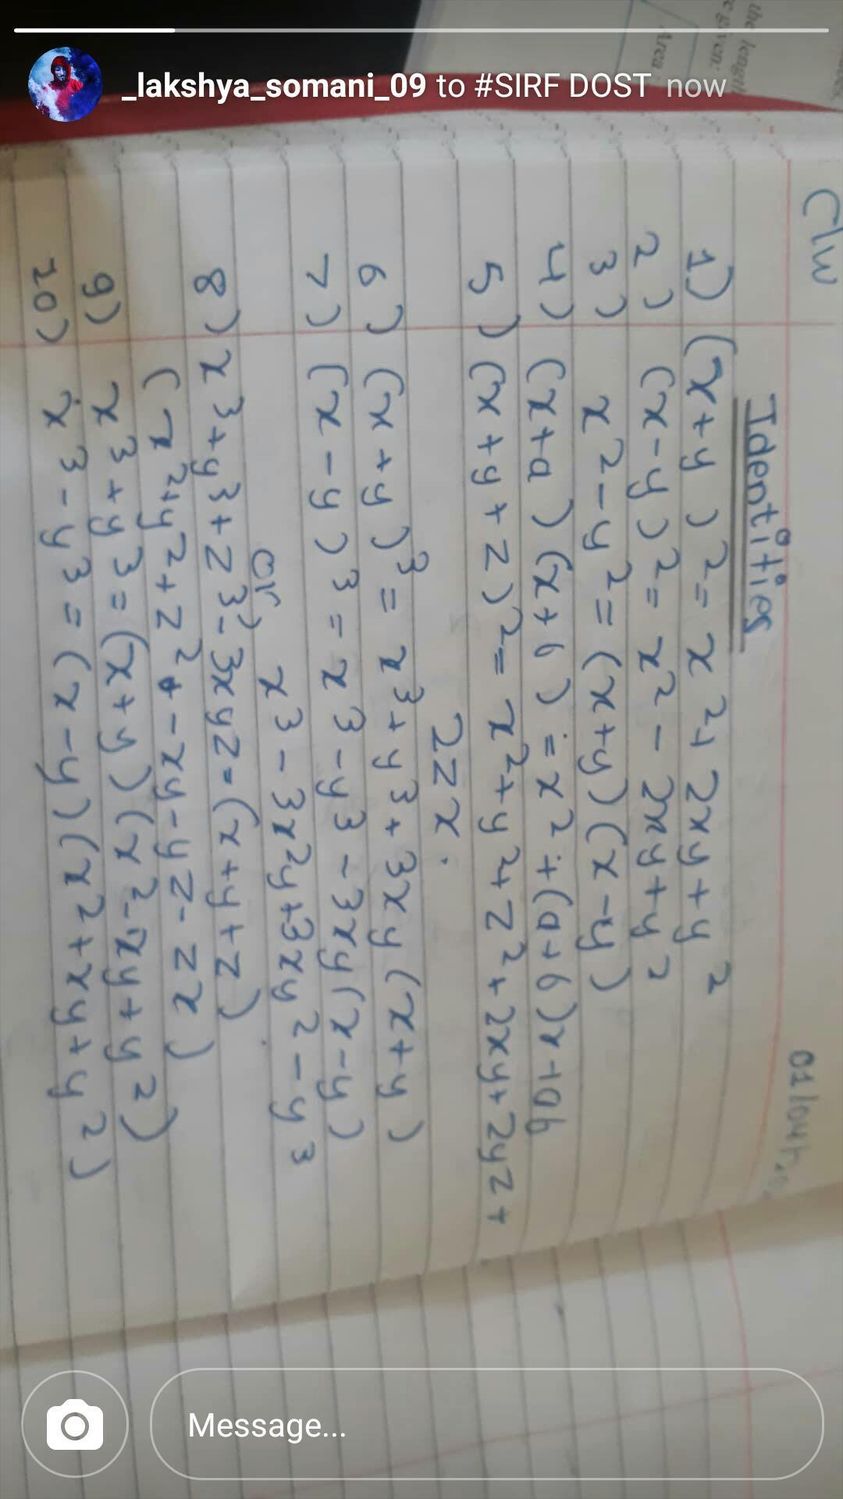 _lakshya_somani_09 to #SIRF DOST now
the length
Area
C/W
Identities
1) (x+y)² = x²+2xy+y²
2) (x-y)² = x²-2xy+y²
3) x²-y² = (x+y)(x-y)
4) (x+a)(x+b) = x²+(a+b)x+ab
5) (x+y+z)² = x²+y²+z²+2xy+2yz+
2zx.
6) (x+y)³ = x³+y³+3xy(x+y)
7) (x-y)³ = x³-y³-3xy(x-y)
or, x³-3x²y+3xy²-y³
8) x³+y³+z³-3xyz=(x+y+z)
(x²+y²+z²-xy-yz-zx)
9) x³+y³=(x+y)(x²-xy+y²)
10) x³-y³=(x-y)(x²+xy+y²)
Message...